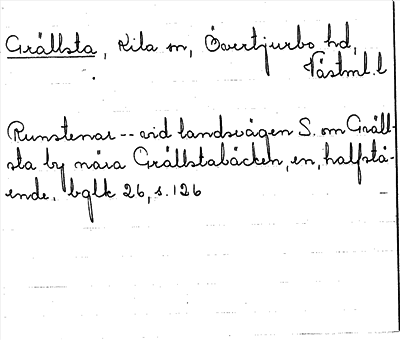 Grällsta, Kila sn, Övertjurbo hd,
Västml. l
Runstenar -- vid landsvägen S. om Gräll-
sta by nära Grällstabäcken, en, halfstå-
ende. bglk 26, s. 126